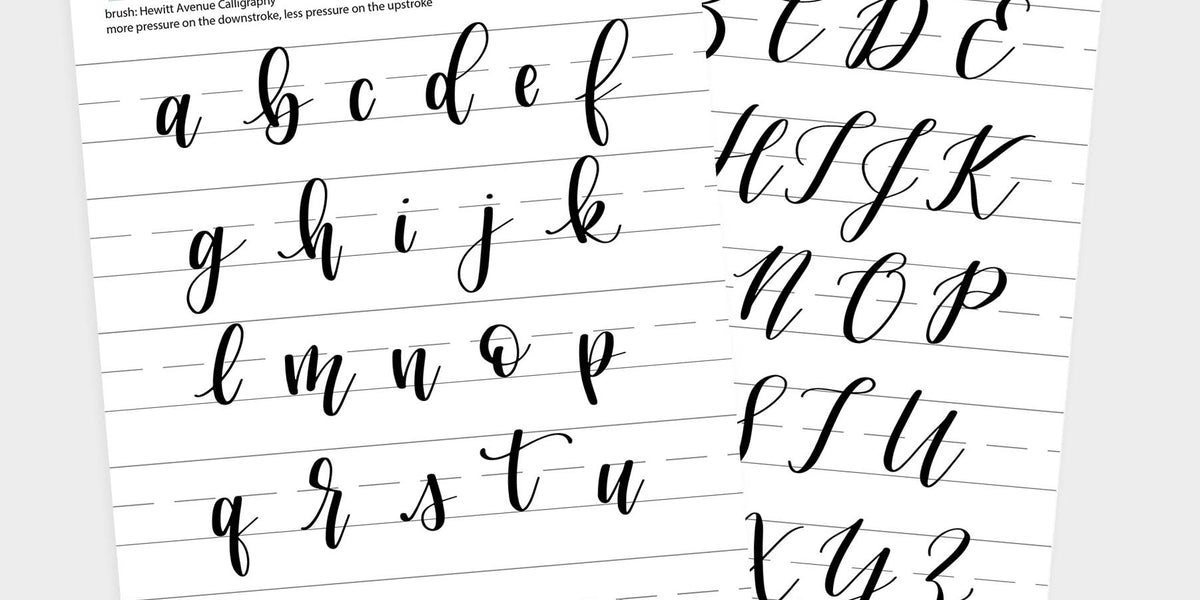 brush: Hewitt Avenue Calligraphy
more pressure on the downstroke, less pressure on the upstroke
a b c d e f
g h i j k
l m n o p
q r s t u
C D E
H I J K
N O P
T U
X Y Z